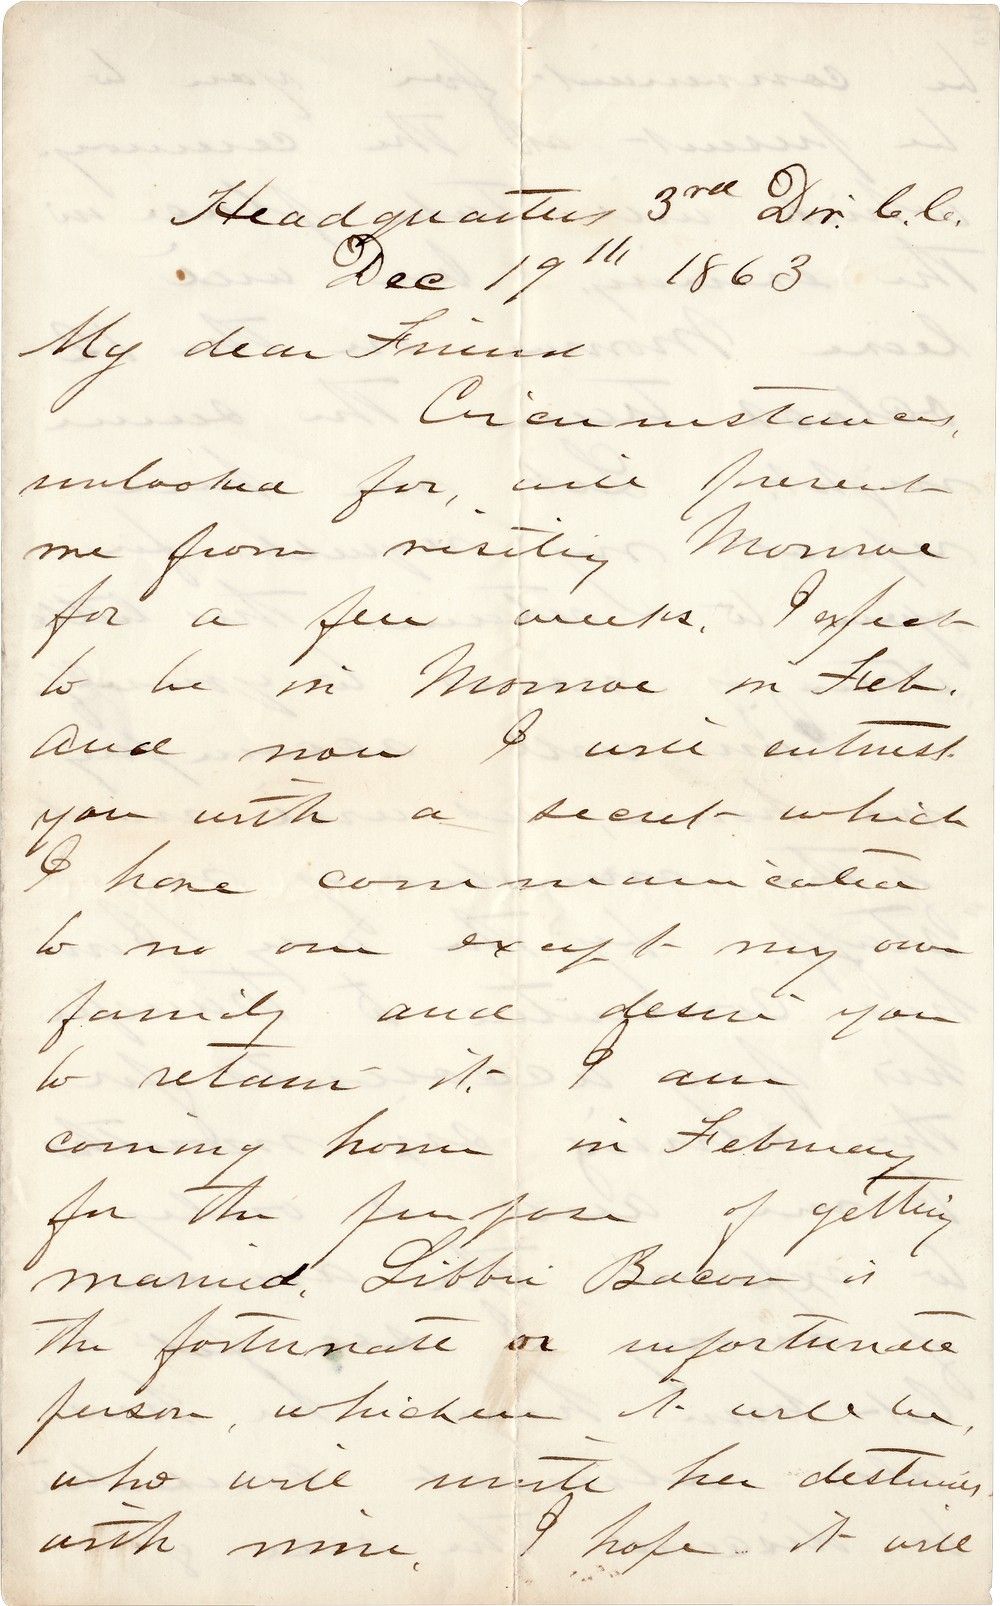 Headquarters 3rd Div. C.C.
Dec 19th 1863
My dear Friend
Circumstances,
unlooked for, will prevent
me from visiting Monroe
for a few weeks. I expect
to be in Monroe in Feb.
and now I will entrust
you with a secret which
I have communicated
to no one except my own
family and desire you
to retain it. I am
coming home in February
for the purpose of getting
married. Libbie Bacon is
the fortunate or unfortunate
person, whichever it will be,
who will unite her destinies
with mine. I hope it will